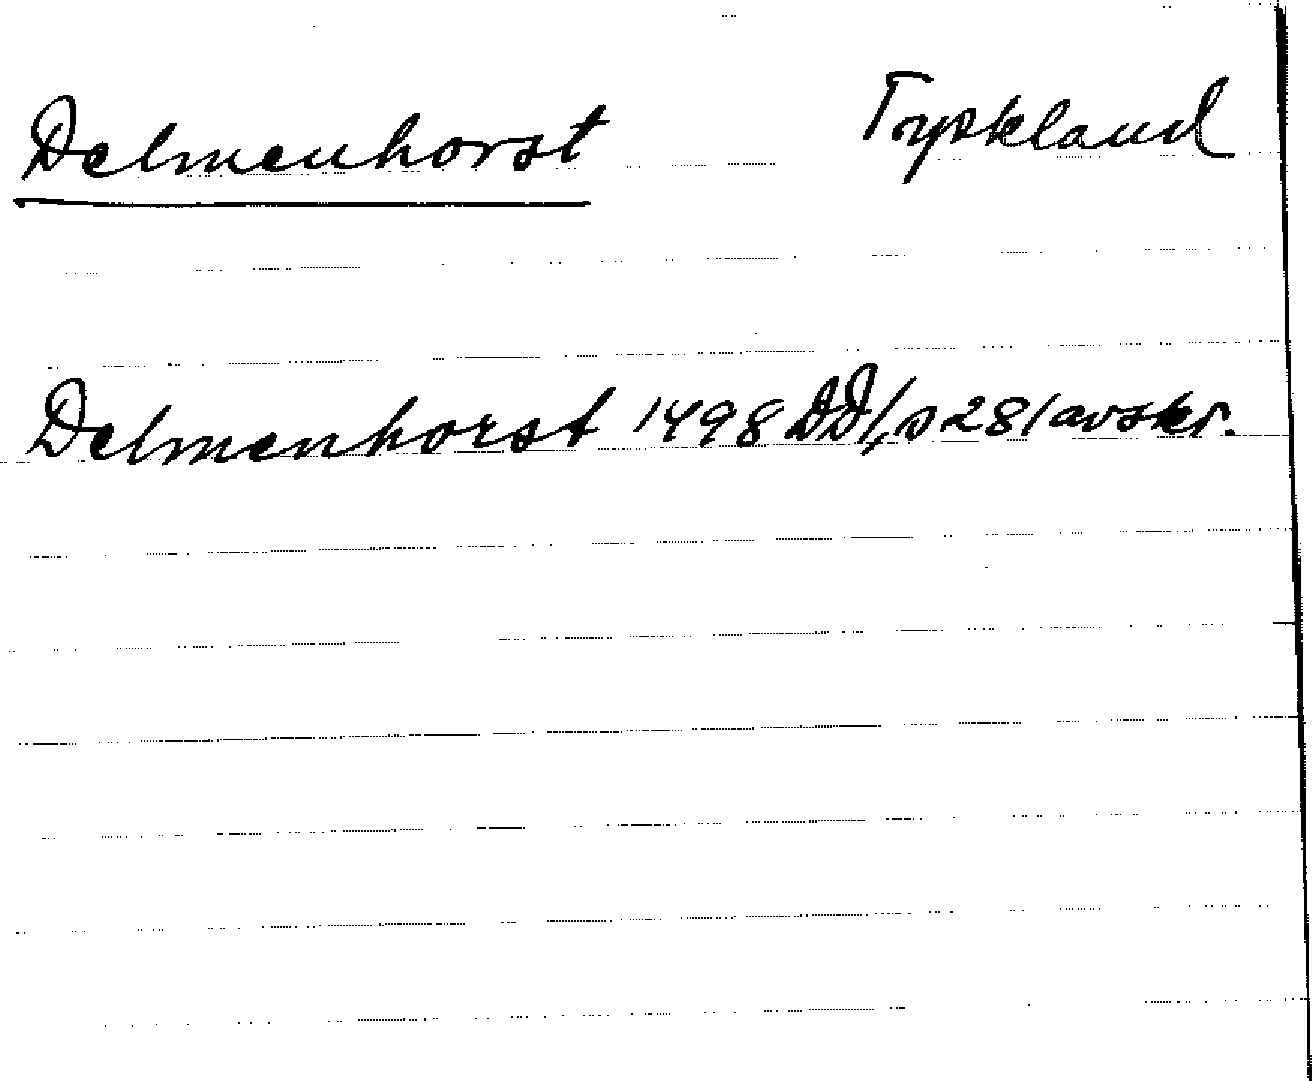 Delmenhorst Tyskland
Delmenhorst 1498 DD 1, s 281 avskr.